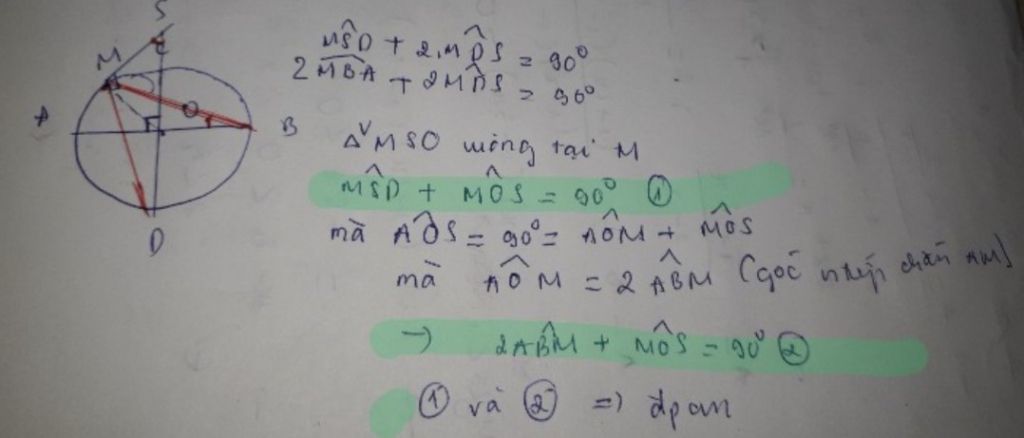 S
M
A
O
B
D
MŜD + 2.MD̂S = 90⁰
2 MB̂A + 2MD̂S = 90⁰
Δᵛ MSO vuông tại M
MŜD + MÔS = 90⁰ ①
mà AÔS = 90⁰ = AÔM + MÔS
mà AÔM = 2 AB̂M (góc chắn AM)
→ 2AB̂M + MÔS = 90⁰ ②
① và ② => đpcm